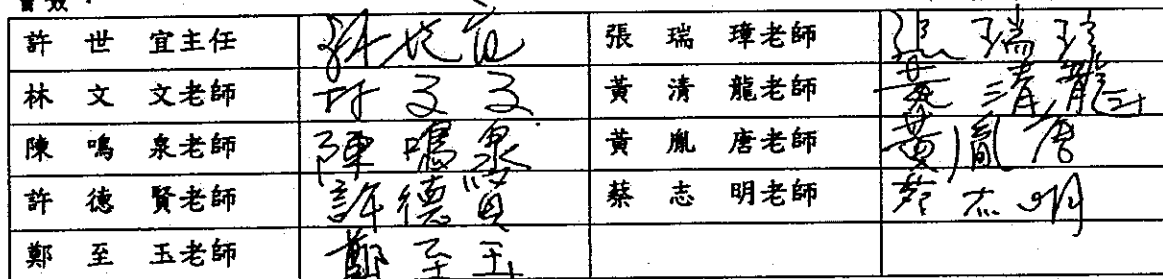 許世宜主任 許世宜 張瑞璋老師 張瑞璋
林文文老師 林文文 黃清龍老師 黃清龍
陳鳴泉老師 陳鳴泉 黃胤唐老師 黃胤唐
許德賢老師 許德賢 蔡志明老師 蔡志明
鄭至玉老師 鄭至玉